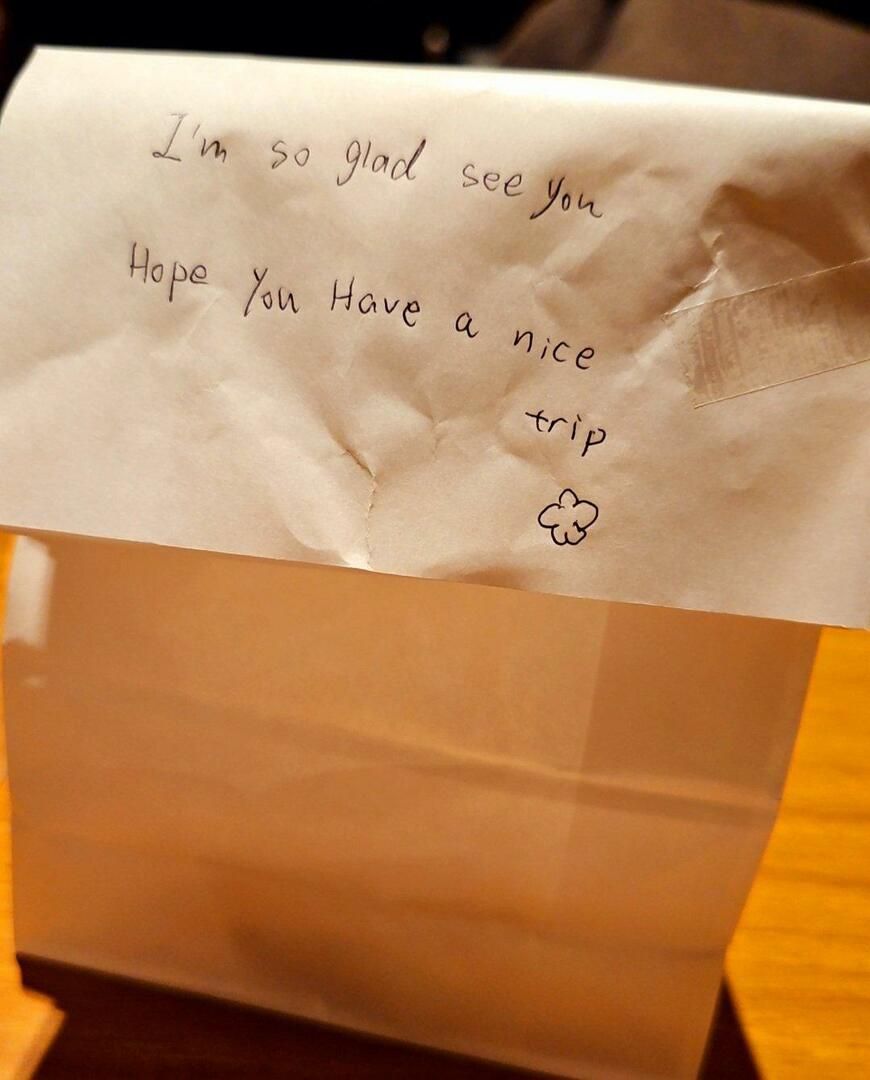 I'm so glad see you
Hope You Have a nice
trip